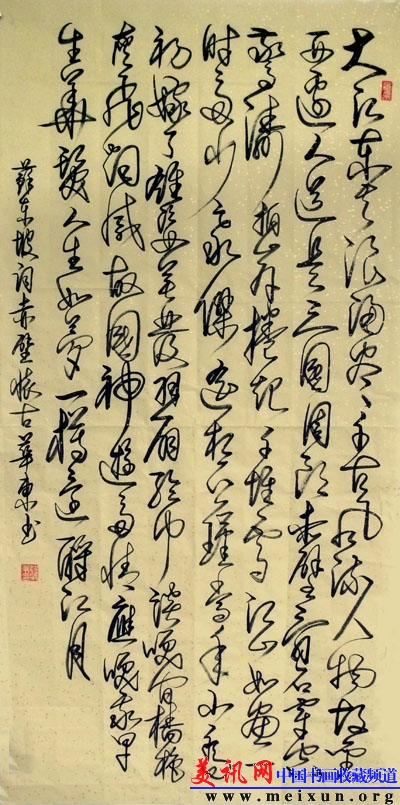 大江东去浪淘尽千古风流人物故壘
西边人道是三國周郎赤壁乱石穿空
驚涛拍岸捲起千堆雪江山如画一
时多少豪傑遥想公瑾當年小乔
初嫁了雄姿英發羽扇纶巾談嘆间檣櫓
灰飛烟滅故國神遊多情應嘆我早
生華髮人生如夢一樽還酹江月
蘇东坡词赤壁懷古華東书
美讯网 中国书画收藏频道
www.meixun.org